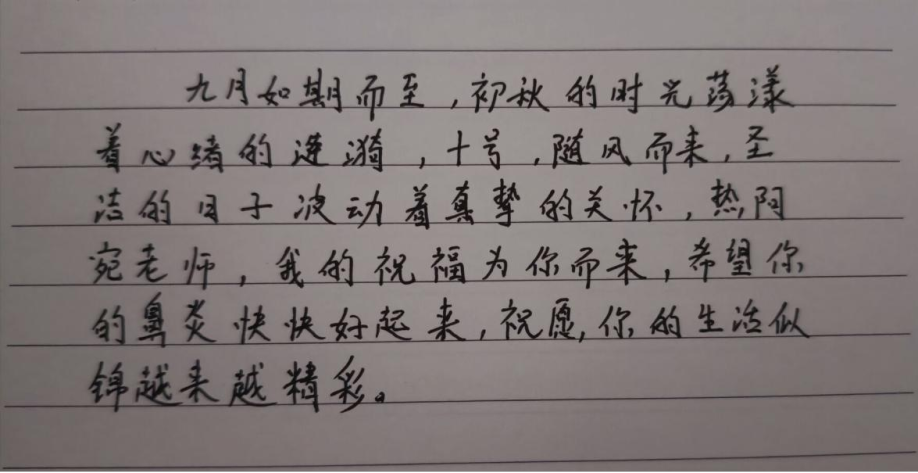 九月如期而至，初秋的时光荡漾
着心绪的涟漪，十号，随风而来，圣
洁的日子波动着真挚的关怀，热阿
宛老师，我的祝福为你而来，希望你
的鼻炎快快好起来，祝愿，你的生活似
锦越来越精彩。